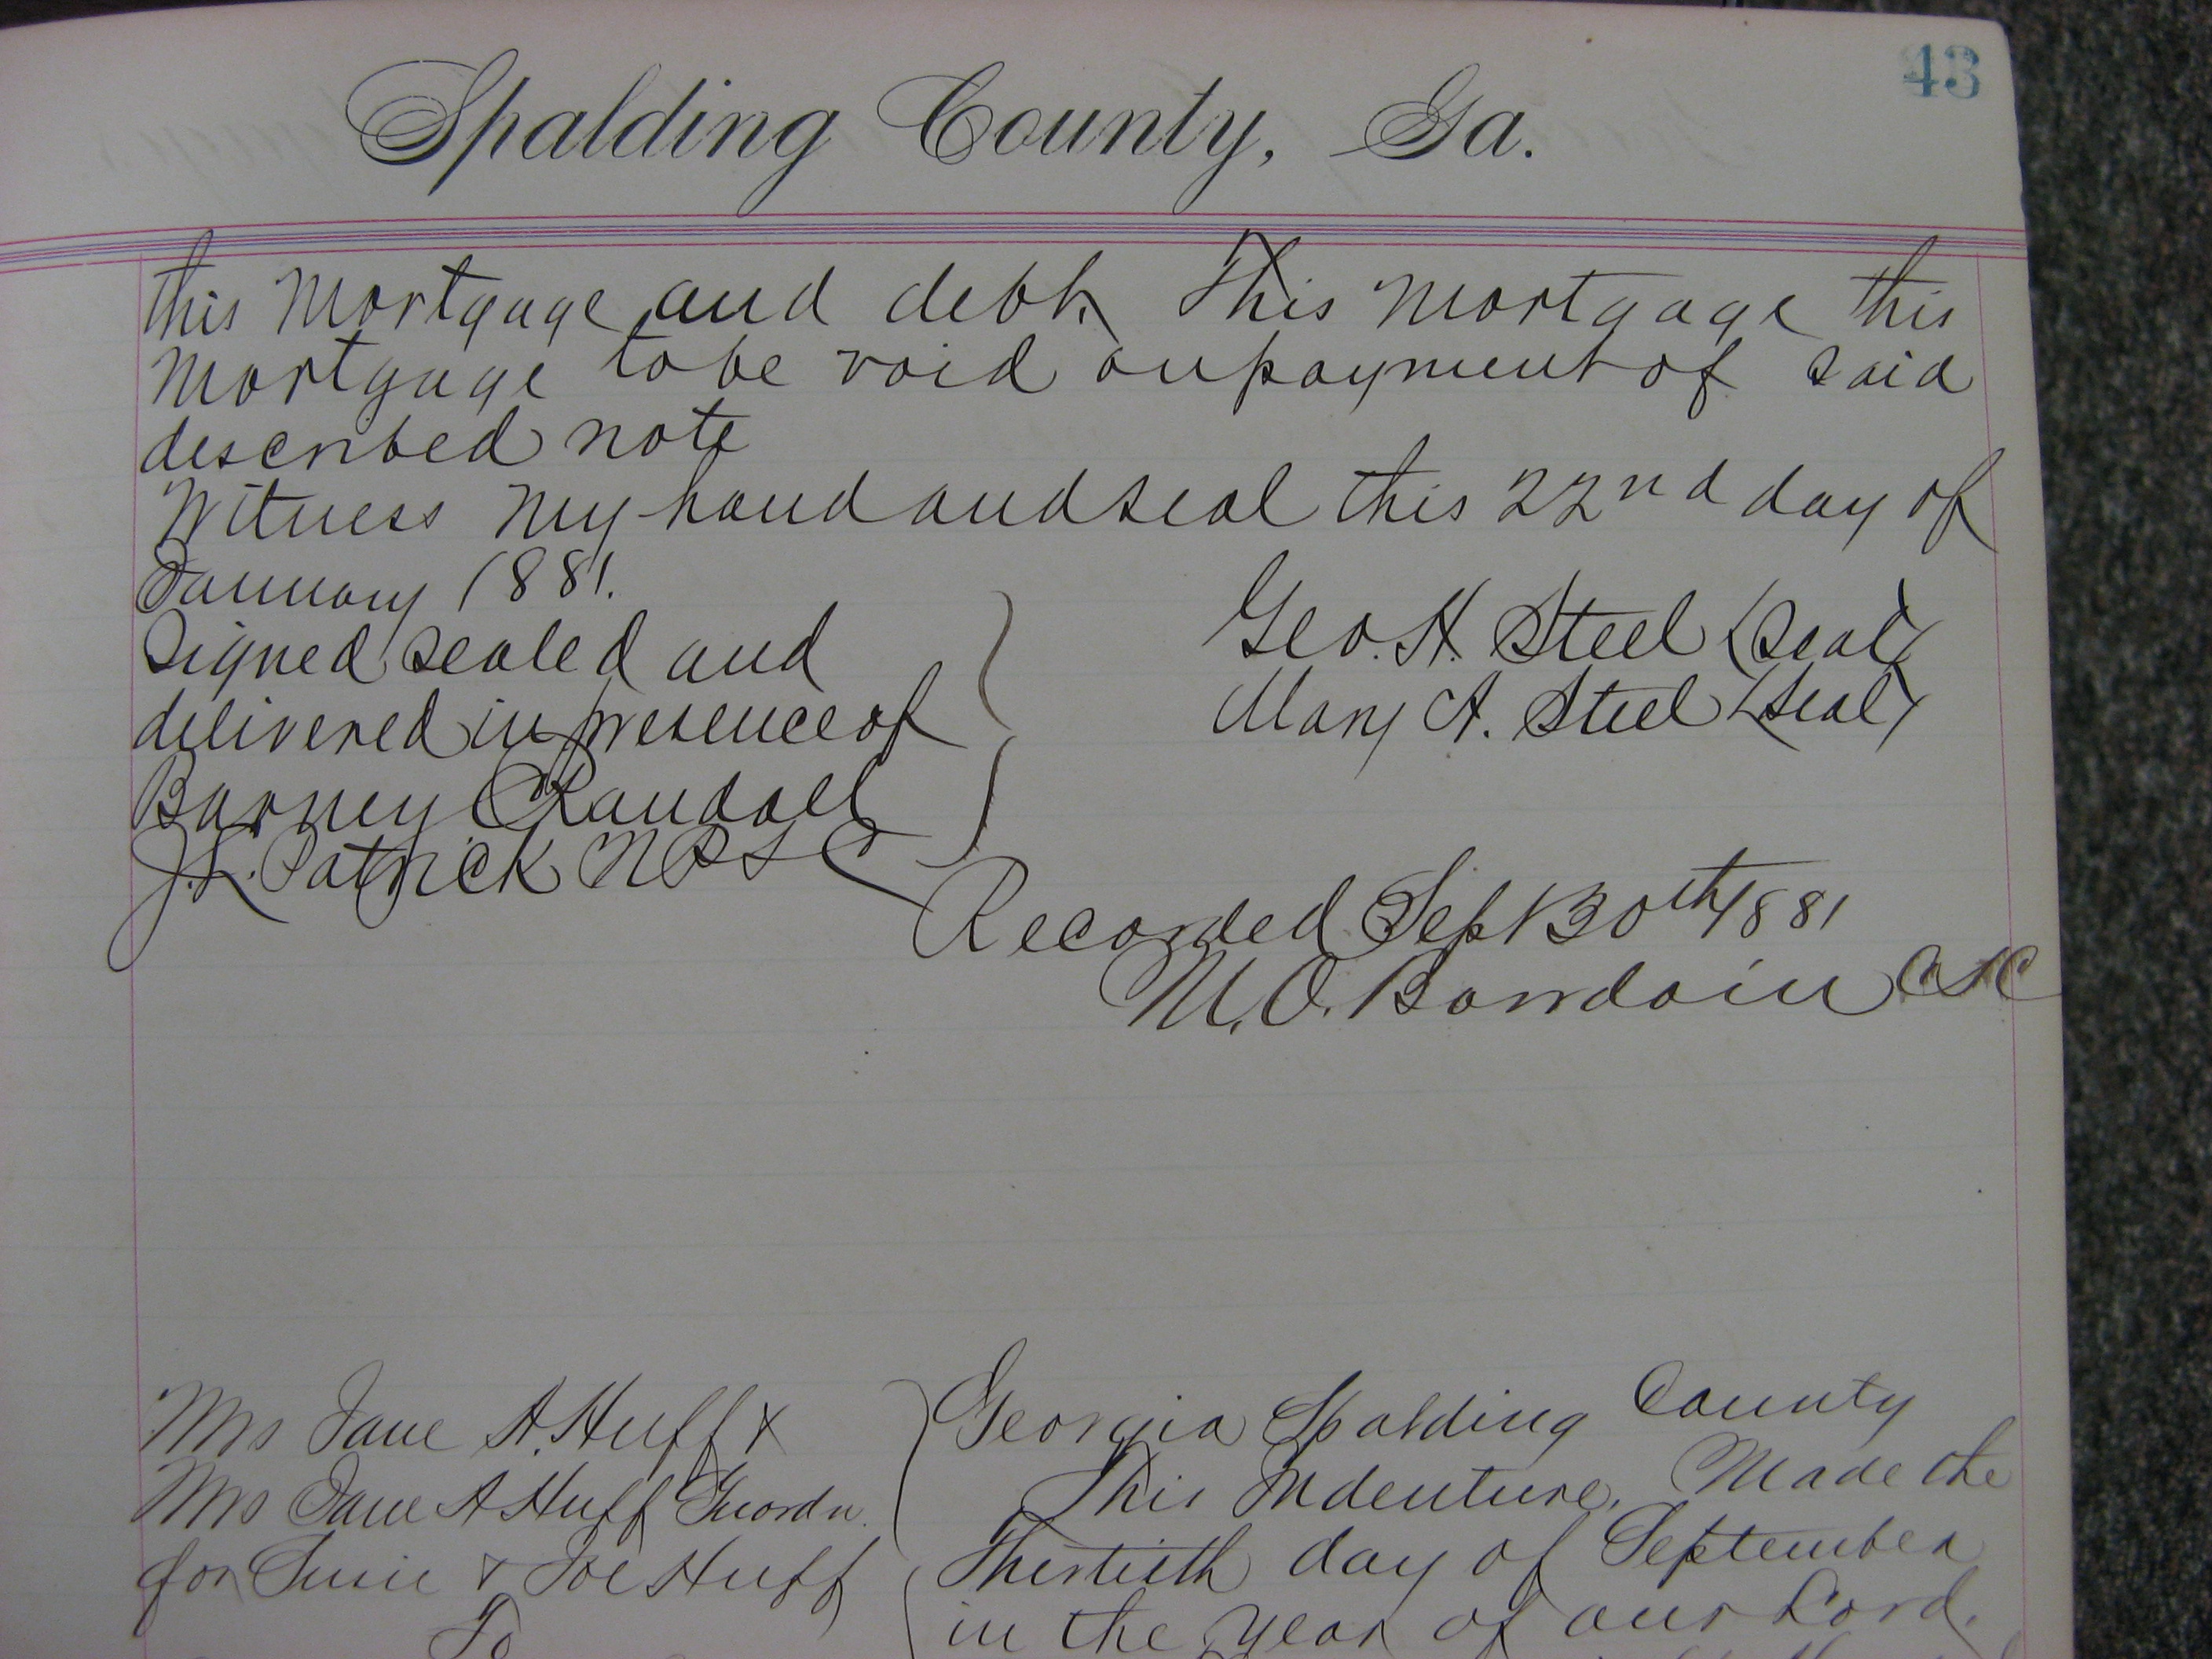 43
Spalding County, Ga.
this Mortgage and debt This Mortgage this
Mortgage to be void on payment of said
described note
Witness My hand and seal this 22nd day of
January 1881.
Signed sealed and
delivered in presence of
Barney Randall
J.L. Patrick NPSC
Geo. H. Steel (Seal)
Mary A. Steel (Seal)
Recorded Sept 30th 1881
M.O. Bowdoin CSC
Mrs Jane A. Huff &
Mrs Jane A Huff Guardn.
for Susie & Joe Huff
To
Georgia Spalding County
This Indenture, Made the
Thirtieth day of September
in the year of our Lord,